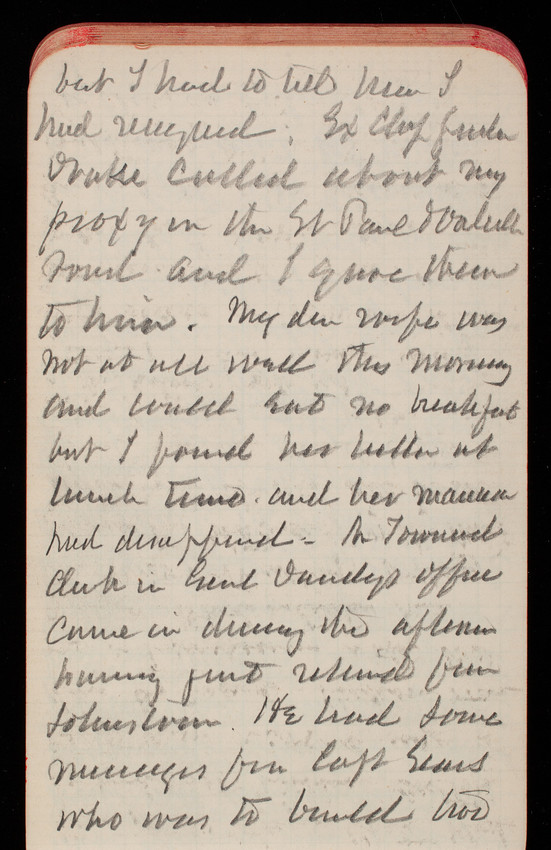 but I had to tell him I
had resigned. Ex Chf
Drake called about my
proxy in the St Paul & Duluth
road and I gave them
to him. My dear wife was
not at all well this morning
and could eat no breakfast
but I found her better at
lunch time and her nausea
had disappeared - Mr Townsend
Clerk in Genl Vandeys office
came in during the afternoon
having just returned from
Johnstown. He had some
messages from Capt Sears
who was to build two